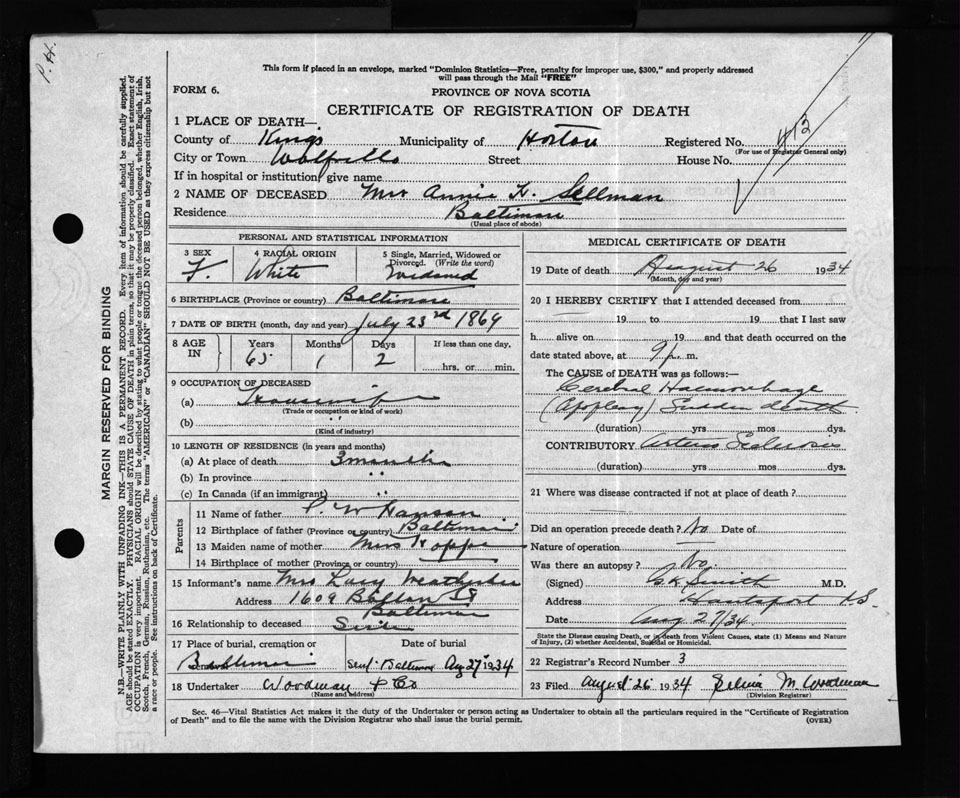 P. H.
This form if placed in an envelope, marked "Dominion Statistics—Free, penalty for improper use, $300," and properly addressed
will pass through the Mail "FREE"
FORM 6.
PROVINCE OF NOVA SCOTIA
CERTIFICATE OF REGISTRATION OF DEATH
1 PLACE OF DEATH—
County of Kings Municipality of Horton Registered No. 413
(For use of Registrar General only)
City or Town Street House No.
If in hospital or institution, give name
2 NAME OF DECEASED Mrs Annie H. Sellman
Residence Baltimore
(Usual place of abode)
PERSONAL AND STATISTICAL INFORMATION
3 SEX 4 RACIAL ORIGIN 5 Single, Married, Widowed or
Divorced. (Write the word)
F. White Widowed
6 BIRTHPLACE (Province or country) Baltimore
7 DATE OF BIRTH (month, day and year) July 23rd 1869
8 AGE IN Years Months Days If less than one day,
65 1 2 hrs. or min.
9 OCCUPATION OF DECEASED
(a) Housewife
(Trade or occupation or kind of work)
(b) "
(Kind of industry)
10 LENGTH OF RESIDENCE (in years and months)
(a) At place of death 3 months
(b) In province "
(c) In Canada (if an immigrant) "
Parents
11 Name of father P. W Hanson
12 Birthplace of father (Province or country) Baltimore
13 Maiden name of mother Miss Hoppe
14 Birthplace of mother (Province or country)
15 Informant's name Mrs Lucy
Address 1609 Bolton St
Baltimore
16 Relationship to deceased
17 Place of burial, cremation or Date of burial
Baltimore Sent Baltimore Aug 27 1934
18 Undertaker Woodman & Co
(Name and address)
MEDICAL CERTIFICATE OF DEATH
19 Date of death August 26 1934
(Month, day and year)
20 I HEREBY CERTIFY that I attended deceased from
19 to 19 that I last saw
h alive on 19 and that death occurred on the
date stated above, at 9 p. m.
The CAUSE of DEATH was as follows:—
Cerebral Haemorrhage
(Apoplexy) Sudden death
(duration) yrs mos dys.
CONTRIBUTORY
(duration) yrs mos dys.
21 Where was disease contracted if not at place of death?
Did an operation precede death? No Date of
Nature of operation
Was there an autopsy? No.
(Signed) Smith M.D.
Address Hantsport N.S.
Date Aug 27/34
State the Disease causing Death, or in death from Violent Causes, state (1) Means and Nature
of Injury, (2) whether Accidental, Suicidal or Homicidal.
22 Registrar's Record Number 3
23 Filed August 26 1934 M. Woodman
(Division Registrar)
Sec. 46—Vital Statistics Act makes it the duty of the Undertaker or person acting as Undertaker to obtain all the particulars required in the "Certificate of Registration
of Death" and to file the same with the Division Registrar who shall issue the burial permit.
(OVER)
MARGIN RESERVED FOR BINDING
N.B.—WRITE PLAINLY WITH UNFADING INK—THIS IS A PERMANENT RECORD. Every item of information should be carefully supplied.
AGE should be stated EXACTLY. PHYSICIANS should STATE CAUSE OF DEATH in plain terms, so that it may be properly classified. Exact statement of
OCCUPATION is very important. RACIAL ORIGIN will be described by stating to what people or tongue the deceased person belonged, whether English, Irish,
Scotch, French, German, Russian, Ruthenian, etc. The terms "AMERICAN" or "CANADIAN" SHOULD NOT BE USED as they express citizenship but not
a race or people. See instructions on back of Certificate.